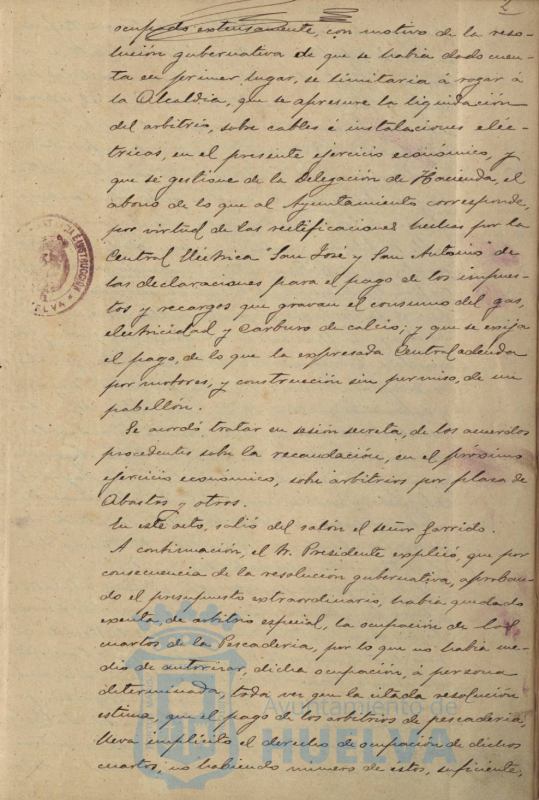 2
ocupado extensamente, con motivo de la reso-
lución gubernativa de que se había dado cuen-
ta en primer lugar, se limitaria á rogar á
la Alcaldia, que se apresure la liquidación
del arbitrio, sobre cables é instalaciones eléc-
tricas, en el presente ejercicio económico, y
que se gestione de la Delegación de Hacienda, el
abono de lo que al Ayuntamiento corresponde,
por virtud de las rectificaciones hechas por la
Central Eléctrica "San José y San Antonio de
las declaraciones para el pago de los impues-
tos y recargos que gravan el consumo del gas,
electricidad y Carburo de calcio; y que se exija
el pago, de lo que la expresada Central adeuda
por motores, y construcción sin permiso, de un
pabellón.
Se acordó tratar en sesión secreta, de los acuerdos
procedentes sobre la recaudación, en el próximo
ejercicio económico, sobre arbitrios por plaza de
Abastos y otros.
En este acto, salió del salón el señor Garrido.
A continuación, el Sr. Presidente explicó, que por
consecuencia de la resolución gubernativa, aproban-
do el presupuesto extraordinario, había quedado
exenta, de arbitrio especial, la ocupación de los
cuartos de la Pescaderia, por lo que no había me-
dio de autorizar, dicha ocupación, á persona
determinada, toda vez que la citada resolución
estima, que el pago de los arbitrios de pescaderia,
lleva implícito el derecho de ocupación de dichos
cuartos; no habiendo número de estos, suficiente,
Ayuntamiento de
HUELVA